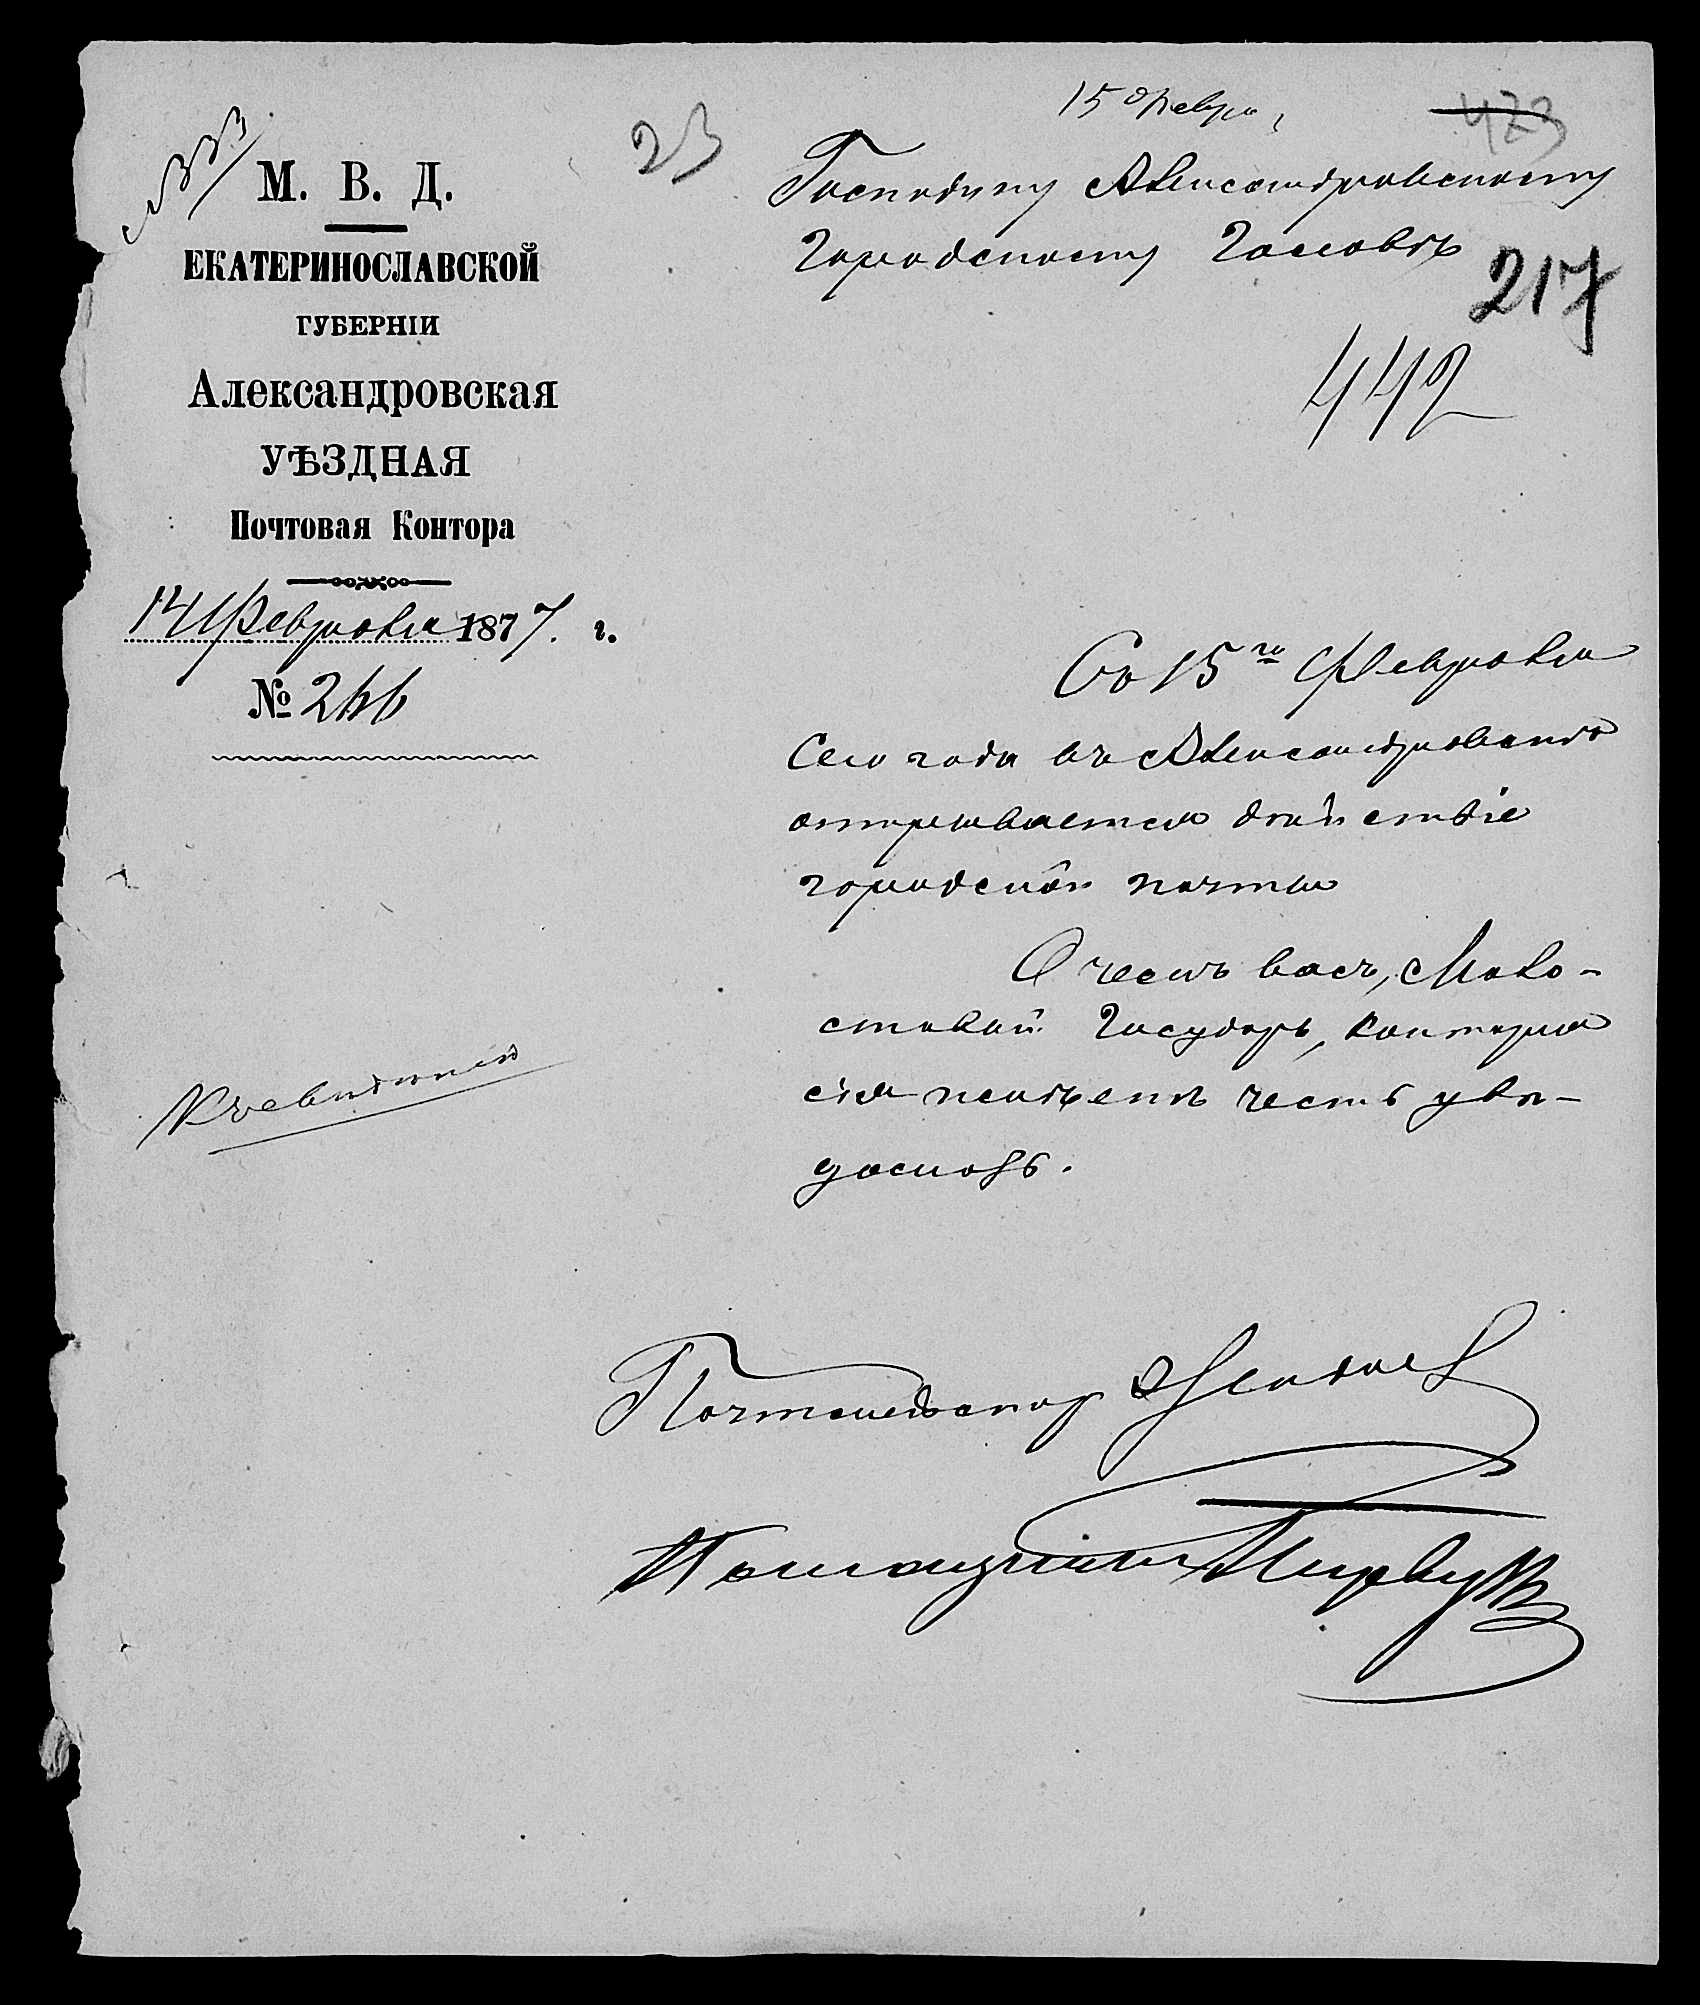 15 Февр.
473
23
М. В. Д.
ЕКАТЕРИНОСЛАВСКОЙ
ГУБЕРНІИ
Александровская
УѢЗДНАЯ
Почтовая Контора
14 Февраля 1877 г.
№ 266
Господину Александровскому
Городскому Головѣ
217
442
Съ 15го Февраля
сего года въ Александровскѣ
открывается дѣйствіе
городской почты
О чемъ васъ, Мило-
стивый Государь, контора
сія имѣетъ честь увѣ-
домить.
Къ свѣдѣнію
Почтмейстеръ
Помощникъ